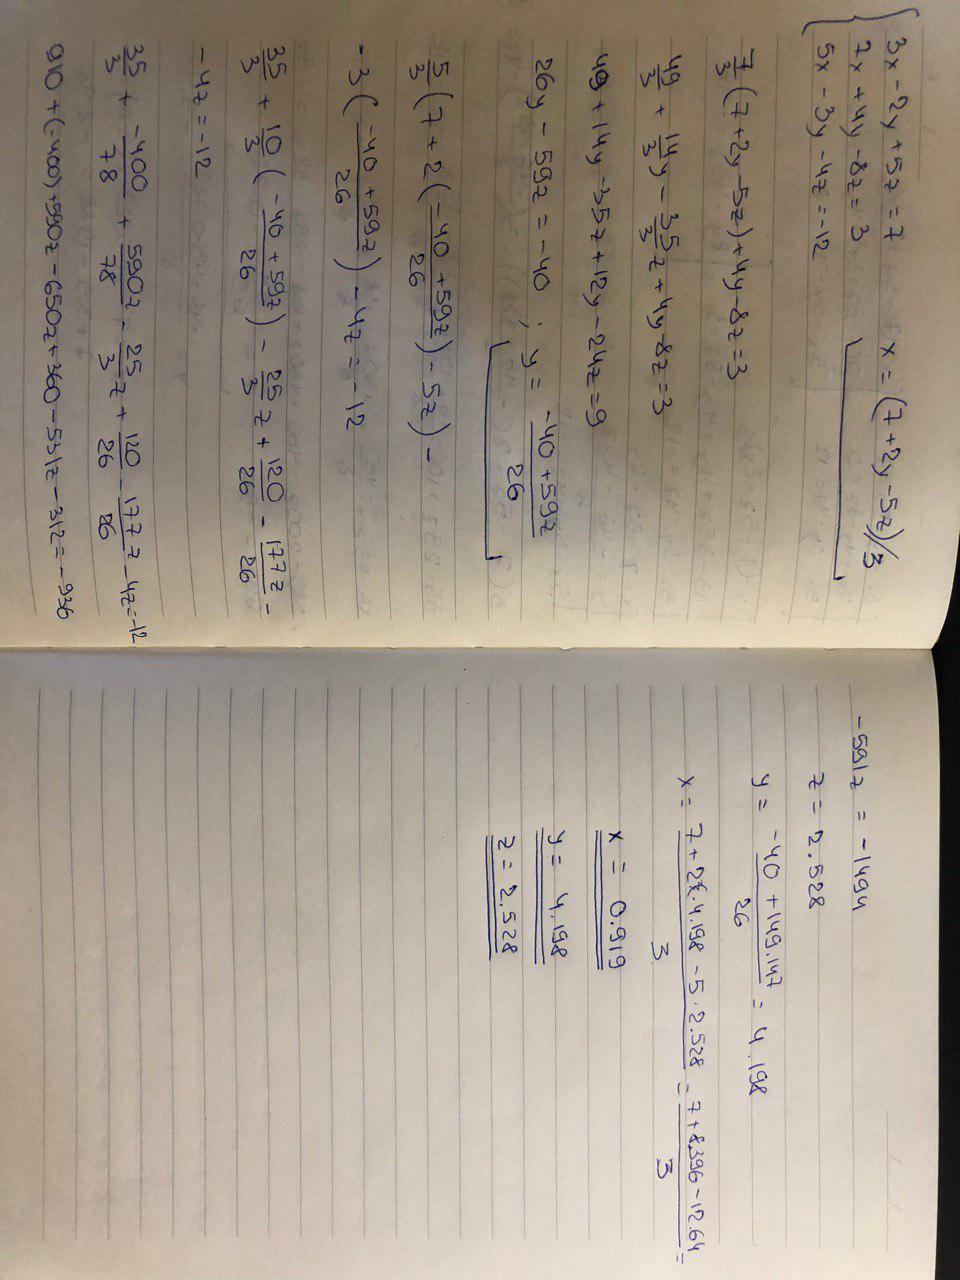 3x - 2y + 5z = 7
7x + 4y - 8z = 3
5x - 3y - 4z = -12
x = (7 + 2y - 5z)/3
7/3 (7 + 2y - 5z) + 4y - 8z = 3
49/3 + 14/3 y - 35/3 z + 4y - 8z = 3
49 + 14y - 35z + 12y - 24z = 9
26y - 59z = -40 ; y = (-40 + 59z)/26
5/3 (7 + 2((-40 + 59z)/26) - 5z) -
-3((-40 + 59z)/26) - 4z = -12
35/3 + 10/3 ((-40 + 59z)/26) - 25/3 z + 120/26 - 177z/26 -
- 4z = -12
35/3 + -400/78 + 590z/78 - 25/3 z + 120/26 - 177z/26 - 4z = -12
910 + (-400) + 590z - 650z + 360 - 531z - 312z = -936
-591z = -1494
z = 2.528
y = (-40 + 149.147)/26 = 4.198
x = (7 + 2·4.198 - 5·2.528)/3 = (7 + 8.396 - 12.64)/3 =
x = 0.919
y = 4.198
z = 2.528